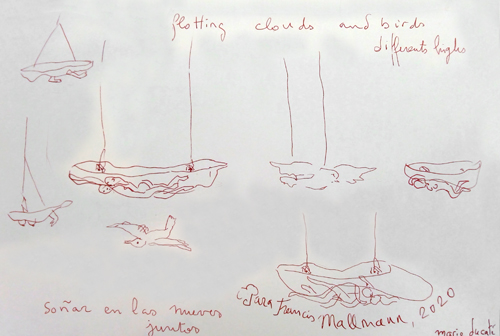 flotting clouds and birds
differents hights
Soñar en las nuves
juntos
Para Francis Mallmann, 2020
mario